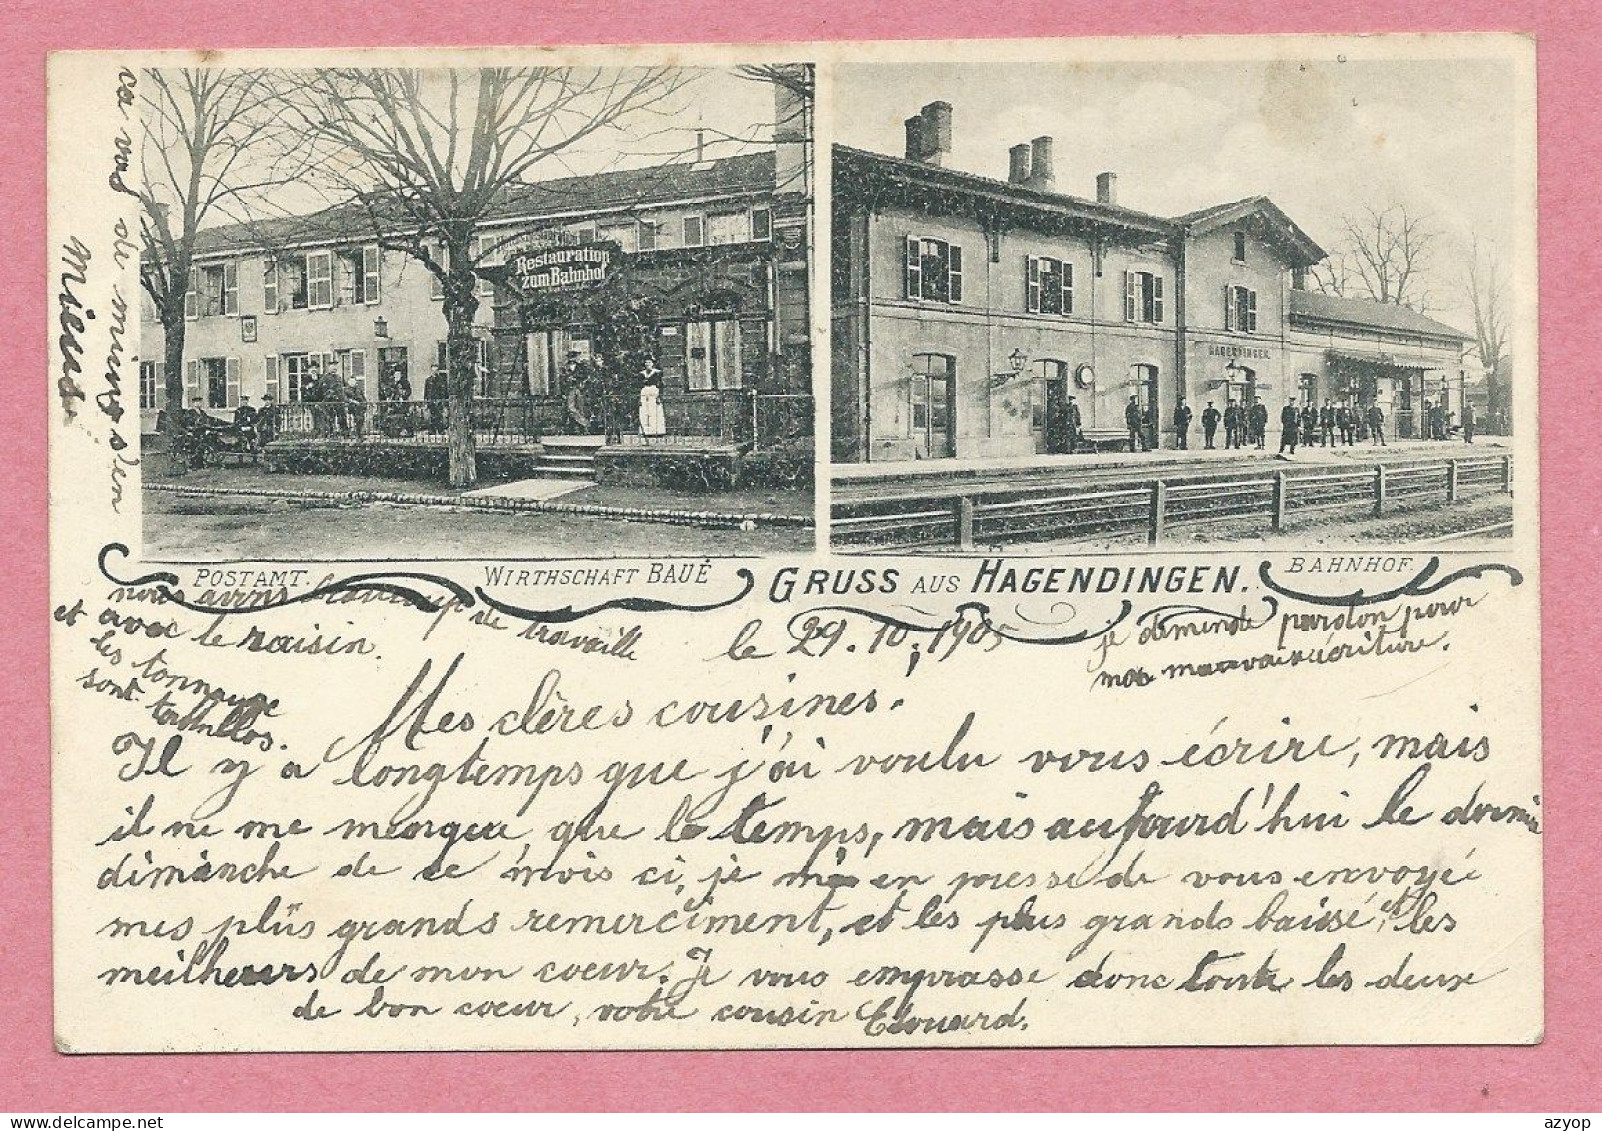 Restauration
zum Bahnhof
HAGENDINGEN
POSTAMT.
WIRTHSCHAFT BAUÉ
GRUSS AUS HAGENDINGEN.
BAHNHOF.
ca vas de mieux s'en
mieuse
nous avons beaucoup de travaille
et avec le raisin.
les tonneaue
sont
le 29. 10. 1905
je demende pardon pour
ma mauvais écriture.
Mes clères cousines.
Il y a longtemps que j'ai voulu vous écrire, mais
il ne me menque que le temps, mais aujourd'hui le dernier
dimanche de ce mois ci, je m'en presse de vous envoyé
mes plus grands remerciment, et les plus grands baissé, et les
meilheurs de mon coeur. Je vous emprasse donc toute les deux
de bon coeur, votre cousin Edouard.
azyop